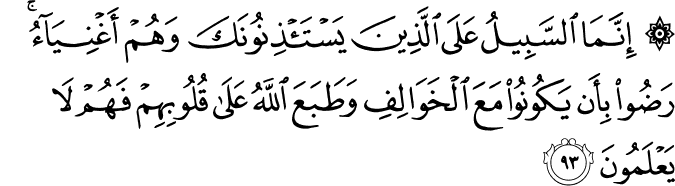 ۞ إِنَّمَا ٱلسَّبِيلُ عَلَى ٱلَّذِينَ يَسْتَـْٔذِنُونَكَ وَهُمْ أَغْنِيَآءُ ۚ
رَضُوا۟ بِأَن يَكُونُوا۟ مَعَ ٱلْخَوَالِفِ وَطَبَعَ ٱللَّهُ عَلَىٰ قُلُوبِهِمْ فَهُمْ لَا
يَعْلَمُونَ ٩٣